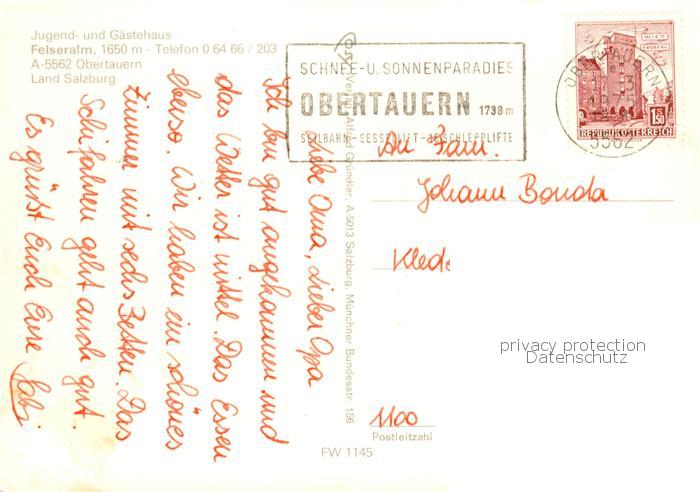 Jugend- und Gästehaus
Felseralm, 1650 m - Telefon 0 64 66 / 203
A-5562 Obertauern
Land Salzburg
SCHNEE-U. SONNENPARADIES
OBERTAUERN 1738m
SEILBAHN-SESSELLIFT-SCHLEPPLIFTE
OBERTAUERN
5562
WIEN
ERDBERG
1.50
REPUBLIK ÖSTERREICH
Liebe Oma, lieber Opa
Ich bin gut angekommen und
das Wetter ist mittel. Das Essen
ebenso. Wir haben ein schönes
Zimmer mit sechs Betten. Das
Schifahren geht auch gut.
Es grüßt Euch Eure Gabi
Verlag Alfred Gründler, A-5013 Salzburg, Münchner Bundesstr. 156
An Fam.
Johann Bonda
privacy protection
Datenschutz
1100
Postleitzahl
FW 1145